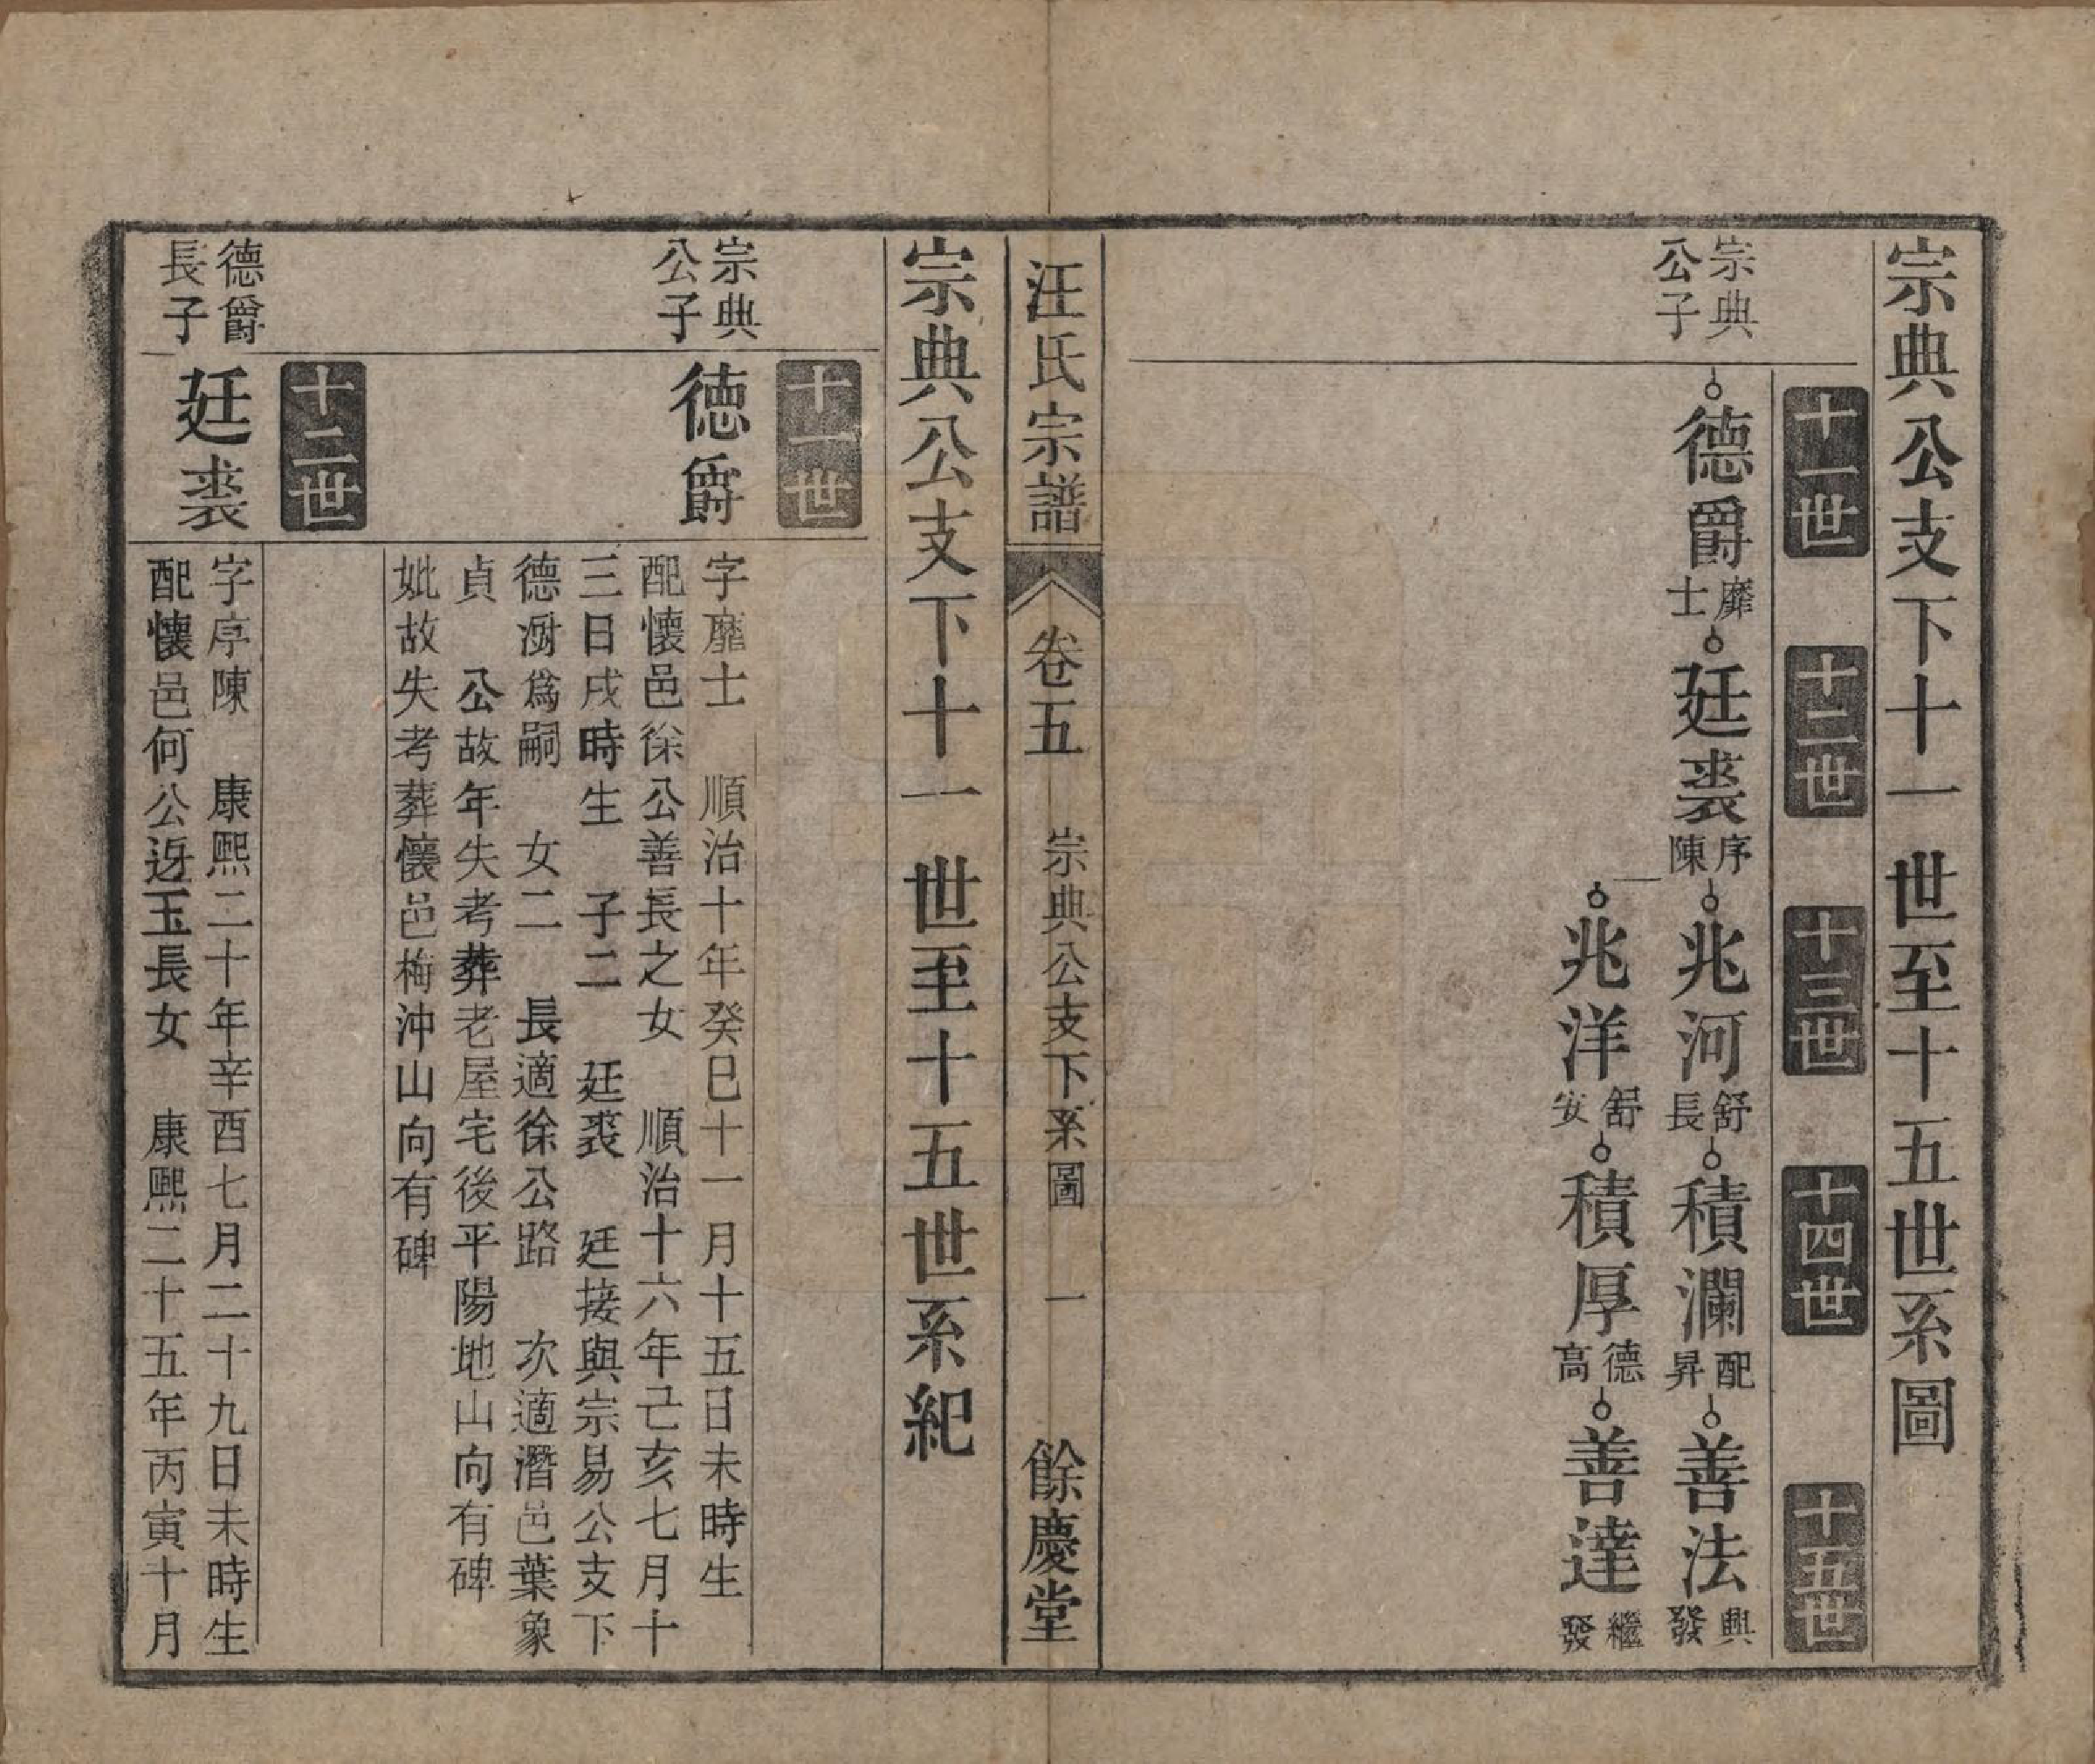 宗典公支下十一世至十五世系圖
十一世 十二世 十三世 十四世 十五世
宗典
公子
德爵 靡士 廷裘 序陳 兆河 舒長 積瀾 配昇 善法 興發
兆洋 舒安 積厚 德高 善達 繼發
汪氏宗譜 卷五 宗典公支下系圖 一 餘慶堂
宗典公支下十一世至十五世系紀
十一世
宗典
公子
德爵
字靡士 順治十年癸巳十一月十五日未時生
配懷邑徐公善長之女 順治十六年己亥七月十
三日戌時生 子二 廷裘 廷接與宗易公支下
德澍爲嗣 女二 長適徐公路 次適潛邑葉象
貞 公故年失考葬老屋宅後平陽地山向有碑
妣故失考葬懷邑梅沖山向有碑
十二世
德爵
長子
廷裘
字序陳 康熙二十年辛酉七月二十九日未時生
配懷邑何公迓玉長女 康熙二十五年丙寅十月